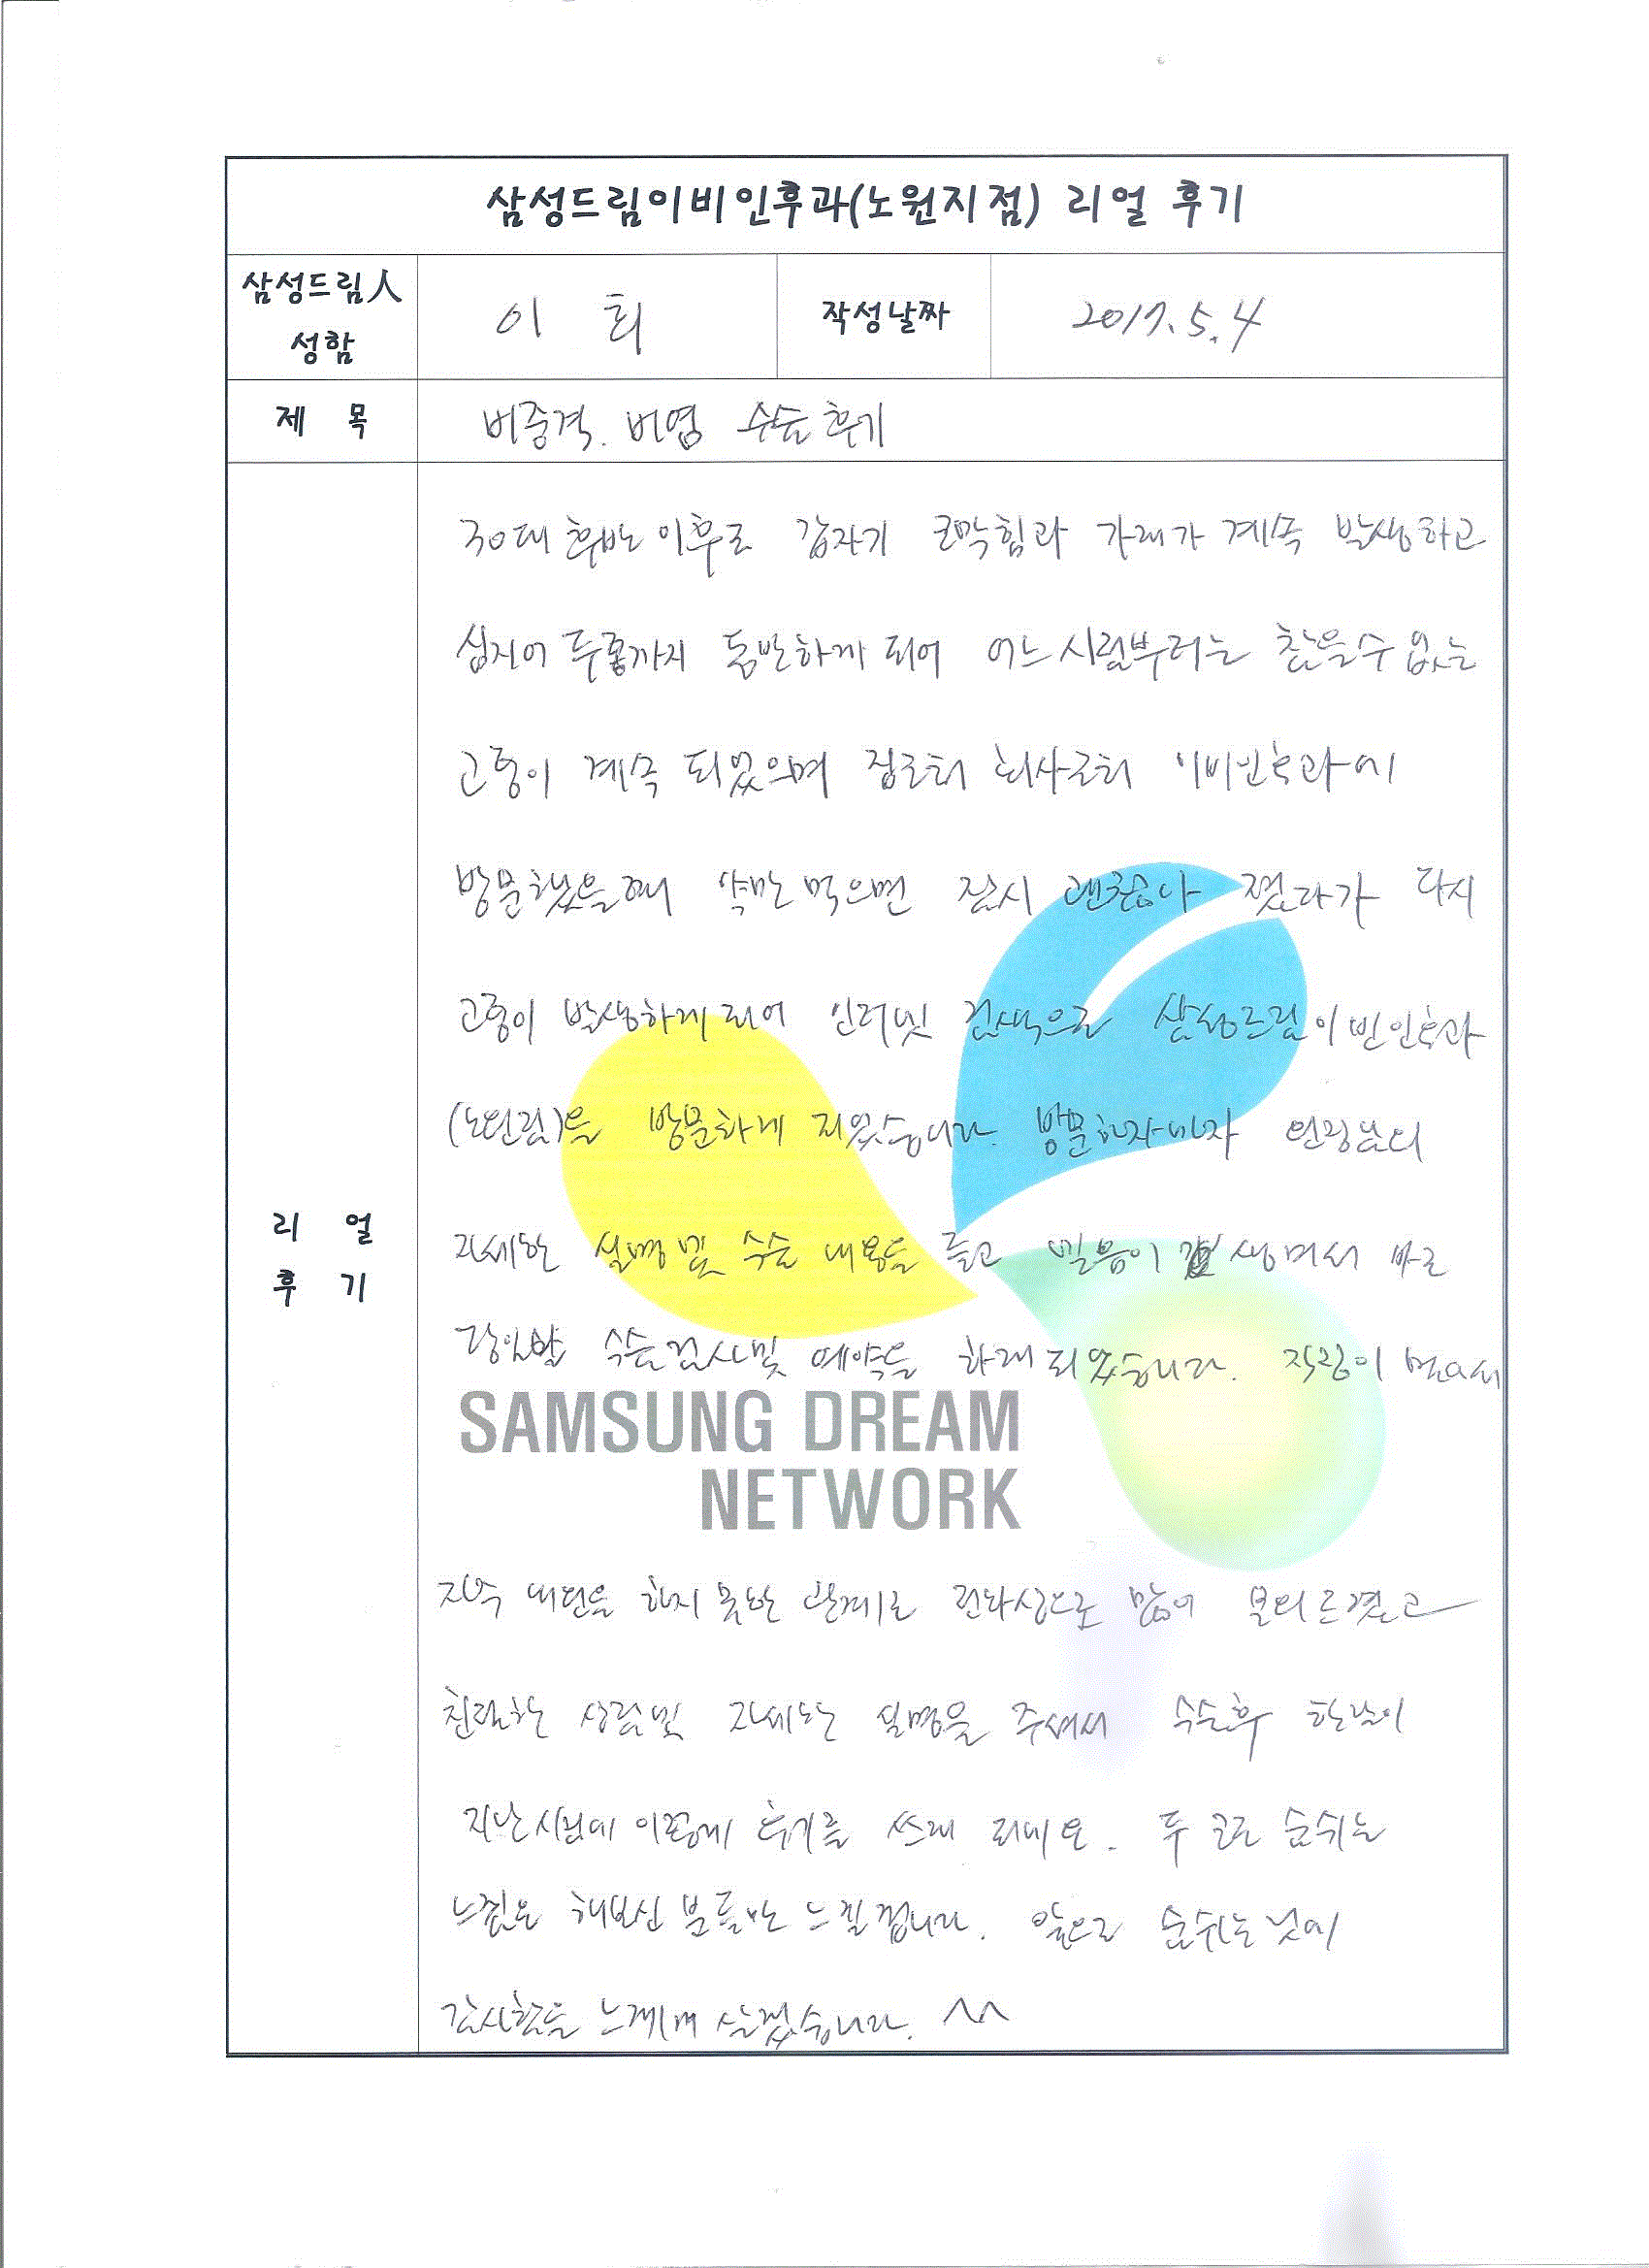 삼성드림이비인후과(노원지점) 리얼 후기
삼성드림人
성함
이 희
작성날짜
2017.5.4
제 목
비중격. 비염 수술후기
30대 후반 이후로 갑자기 코막힘과 가래가 계속 발생하고
심지어 두통까지 동반하게 되어 어느시점부터는 참을수 없는
고통이 계속 되었으며 집근처 회사근처 이비인후과에
방문했을때 약만 먹으면 잠시 괜찮아 졌다가 다시
고통이 발생하게되어 인터넷 검색으로 삼성드림이빈인후과
(노원점)를 방문하게 되었습니다. 방문하자마자 원장님의
리 얼
후 기
자세한 설명 및 수술 내용을 듣고 믿음이 생겨서 바로
당일날 수술검사및 예약을 하게되었습니다. 직장이 멀어서
SAMSUNG DREAM
NETWORK
자주 내원을 하지 못한 관계로 전화상으로 많이 문의드렸고
친절하는 상담및 자세한 설명을 주셔서 수술후 한달이
지난시점에 이렇게 후기를 쓰게 되네요. 두 코로 숨쉬는
느낌은 해보신 분들만 느낄겁니다. 앞으로 숨쉬는것에
감사함을 느끼며 살겠습니다. ^^